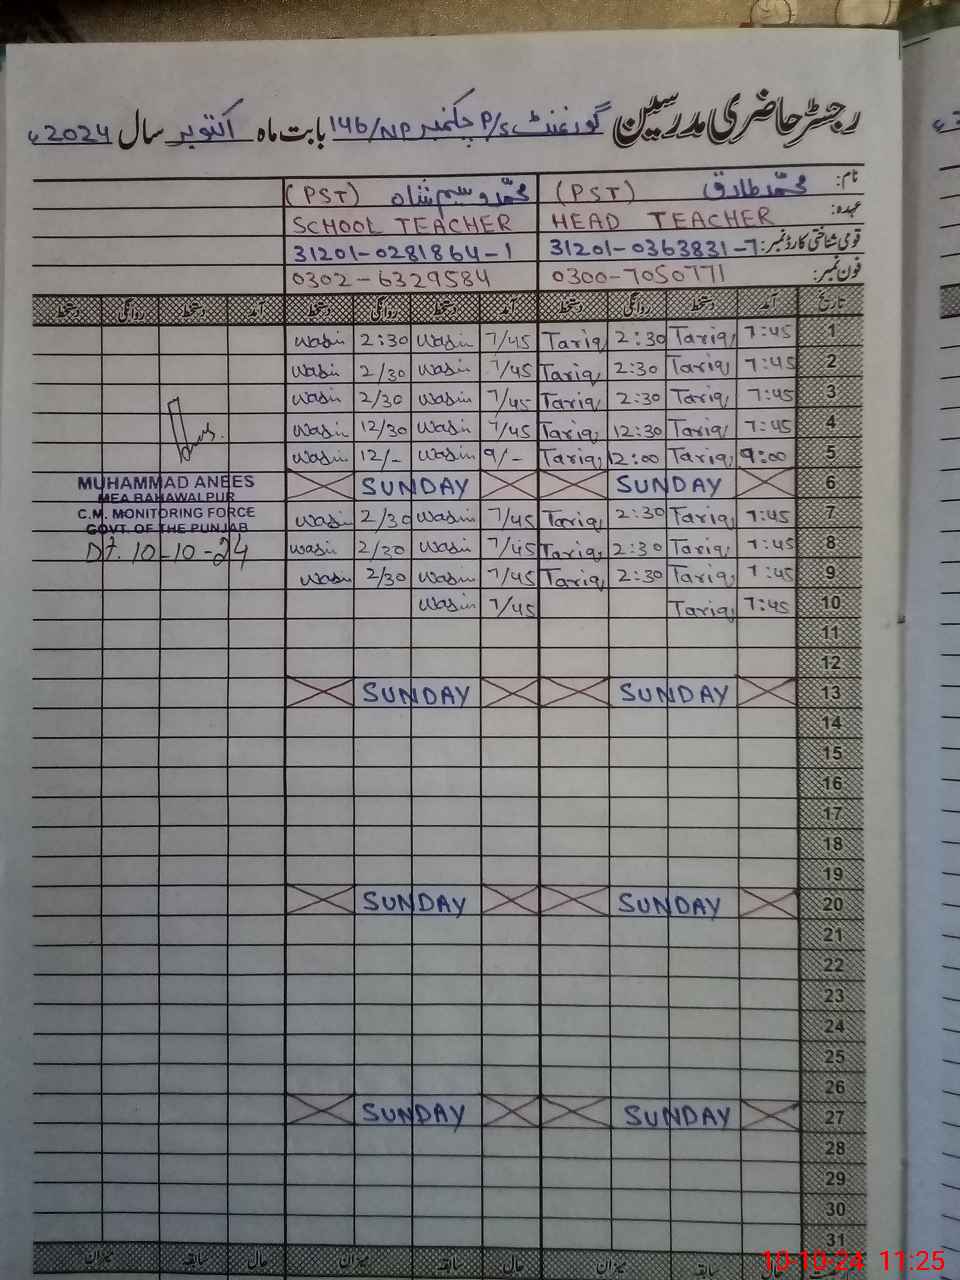 رجسٹر حاضری مدرسین گورنمنٹ P/S چکنمبر 146/NP بابت ماہ اکتوبر سال 2024ء
نام: محمد طارق (PST) محمد وسیم شاہ (PST)
عہدہ: HEAD TEACHER SCHOOL TEACHER
قومی شناختی کارڈ نمبر: 31201-0363831-7 31201-0281864-1
فون نمبر: 0300-7050771 0302-6329584
تاریخ آمد دستخط روانگی دستخط آمد دستخط روانگی دستخط آمد دستخط روانگی دستخط
1 7:45 Tariq 2:30 Tariq 7/45 Wasim 2:30 Wasim
2 7:45 Tariq 2:30 Tariq 7/45 Wasim 2/30 Wasim
3 7:45 Tariq 2:30 Tariq 7/45 Wasim 2/30 Wasim
4 7:45 Tariq 12:30 Tariq 7/45 Wasim 12/30 Wasim
5 9:00 Tariq 12:00 Tariq 9/- Wasim 12/- Wasim
6 SUNDAY SUNDAY
7 7:45 Tariq 2:30 Tariq 7/45 Wasim 2/30 Wasim
8 7:45 Tariq 2:30 Tariq 7/45 Wasim 2/30 Wasim
9 7:45 Tariq 2:30 Tariq 7/45 Wasim 2/30 Wasim
10 7:45 Tariq 7/45 Wasim
11
12
13 SUNDAY SUNDAY
14
15
16
17
18
19
20 SUNDAY SUNDAY
21
22
23
24
25
26
27 SUNDAY SUNDAY
28
29
30
31
MUHAMMAD ANEES
MEA BAHAWALPUR
C.M. MONITORING FORCE
GOVT. OF THE PUNJAB
Dt. 10-10-24
حال سابقہ میزان حال سابقہ میزان
10-10-24 11:25